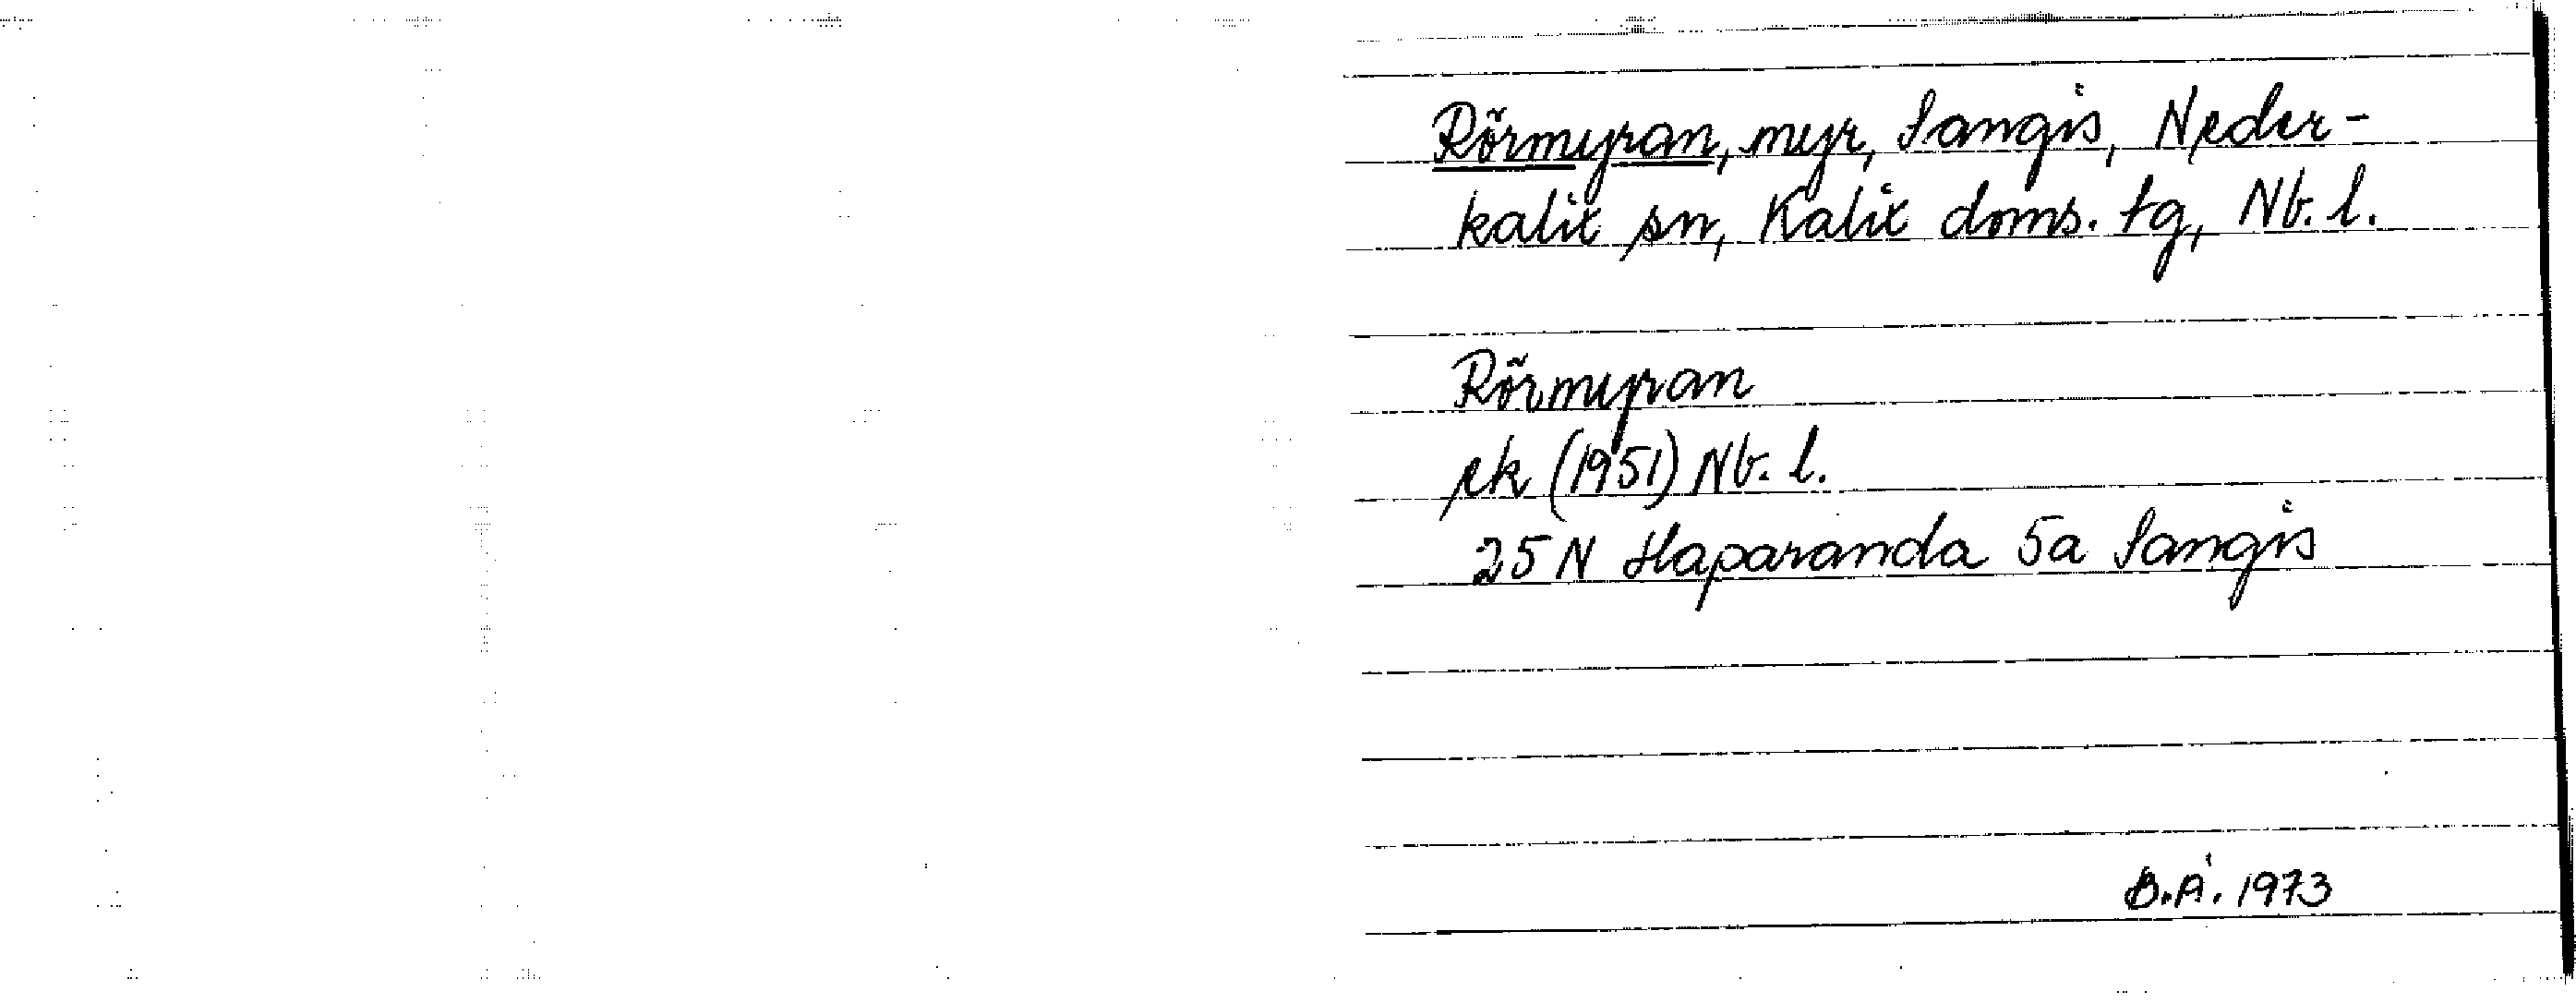 Rörmyran, myr, Sangis, Neder-
kalix sn, Kalix doms. tg, Nb. l.
Rörmyran
ek (1951) Nb. l.
25 N Haparanda 5a Sangis
B.Å. 1973